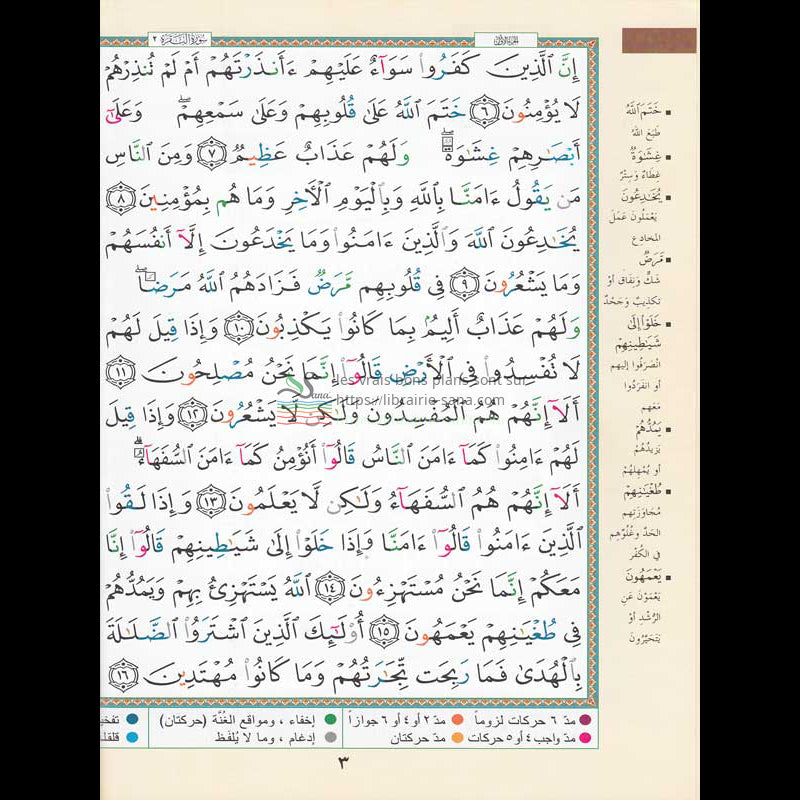 الجزء الأول
سورة البقرة ٢
إِنَّ ٱلَّذِينَ كَفَرُوا۟ سَوَآءٌ عَلَيْهِمْ ءَأَنذَرْتَهُمْ أَمْ لَمْ تُنذِرْهُمْ
لَا يُؤْمِنُونَ ٦ خَتَمَ ٱللَّهُ عَلَىٰ قُلُوبِهِمْ وَعَلَىٰ سَمْعِهِمْ ۖ وَعَلَىٰٓ
أَبْصَٰرِهِمْ غِشَٰوَةٌ ۖ وَلَهُمْ عَذَابٌ عَظِيمٌ ٧ وَمِنَ ٱلنَّاسِ
مَن يَقُولُ ءَامَنَّا بِٱللَّهِ وَبِٱلْيَوْمِ ٱلْأَخِرِ وَمَا هُم بِمُؤْمِنِينَ ٨
يُخَٰدِعُونَ ٱللَّهَ وَٱلَّذِينَ ءَامَنُوا۟ وَمَا يَخْدَعُونَ إِلَّآ أَنفُسَهُمْ
وَمَا يَشْعُرُونَ ٩ فِى قُلُوبِهِم مَّرَضٌ فَزَادَهُمُ ٱللَّهُ مَرَضًا ۖ
وَلَهُمْ عَذَابٌ أَلِيمٌۢ بِمَا كَانُوا۟ يَكْذِبُونَ ١٠ وَإِذَا قِيلَ لَهُمْ
لَا تُفْسِدُوا۟ فِى ٱلْأَرْضِ قَالُوٓا۟ إِنَّمَا نَحْنُ مُصْلِحُونَ ١١
أَلَآ إِنَّهُمْ هُمُ ٱلْمُفْسِدُونَ وَلَٰكِن لَّا يَشْعُرُونَ ١٢ وَإِذَا قِيلَ
لَهُمْ ءَامِنُوا۟ كَمَآ ءَامَنَ ٱلنَّاسُ قَالُوٓا۟ أَنُؤْمِنُ كَمَآ ءَامَنَ ٱلسُّفَهَآءُ ۗ
أَلَآ إِنَّهُمْ هُمُ ٱلسُّفَهَآءُ وَلَٰكِن لَّا يَعْلَمُونَ ١٣ وَإِذَا لَقُوا۟
ٱلَّذِينَ ءَامَنُوا۟ قَالُوٓا۟ ءَامَنَّا وَإِذَا خَلَوْا۟ إِلَىٰ شَيَٰطِينِهِمْ قَالُوٓا۟ إِنَّا
مَعَكُمْ إِنَّمَا نَحْنُ مُسْتَهْزِءُونَ ١٤ ٱللَّهُ يَسْتَهْزِئُ بِهِمْ وَيَمُدُّهُمْ
فِى طُغْيَٰنِهِمْ يَعْمَهُونَ ١٥ أُو۟لَٰٓئِكَ ٱلَّذِينَ ٱشْتَرَوُا۟ ٱلضَّلَٰلَةَ
بِٱلْهُدَىٰ فَمَا رَبِحَت تِّجَٰرَتُهُمْ وَمَا كَانُوا۟ مُهْتَدِينَ ١٦
خَتَمَ ٱللَّهُ
طَبَعَ اللهُ
غِشَٰوَةٌ
غطاءٌ وسِتْرٌ
يُخَٰدِعُونَ
يَعْمَلُونَ عَمَلَ
المخادِع
مَّرَضٌ
شَكٌّ ونِفاق أوْ
تكذيبٌ وَجَحْدٌ
خَلَوْا۟ إِلَىٰ
شَيَٰطِينِهِمْ
انْصَرَفُوا إليهم
أو انفَرَدُوا
مَعَهم
يَمُدُّهُمْ
يَزيدُهُمْ
أو يُمْهِلُهُمْ
طُغْيَٰنِهِمْ
مُجَاوَزَتِهم
الحَدَّ وغُلُوِّهِم
في الكُفْر
يَعْمَهُونَ
يَعْمَوْنَ عَنِ
الرُّشْدِ أوْ
يَتَحَيَّرُونَ
les vrais bons plans sont sur
Sana
https://librairie-sana.com
مدّ ٦ حركات لزوماً مدّ ٢ أو ٤ أو ٦ جوازاً إخفاء ، ومواقع الغُنَّة (حركتان) تفخي
مدّ واجب ٤ أو ٥ حركات مدّ حركتان إدغام ، وما لا يُلفَظ قلقلـ
٣